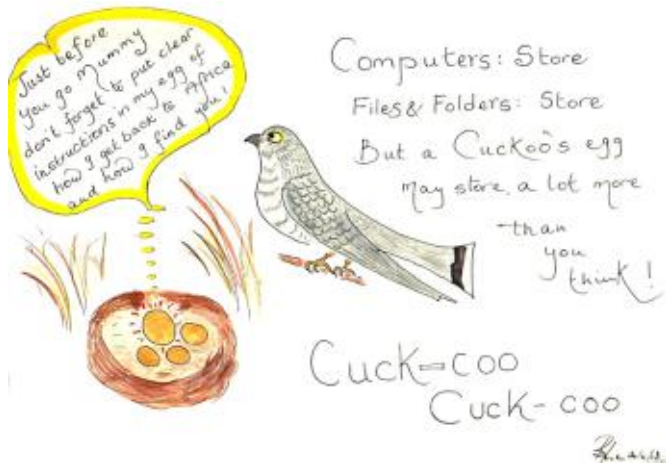 Just before
you go Mummy
don't forget to put clear
instructions in my egg of
how I get back to Africa
and how I find you!
Computers: Store
Files & Folders: Store
But a Cuckoo's egg
may store a lot more
than
you
think!
Cuck=coo
Cuck-coo